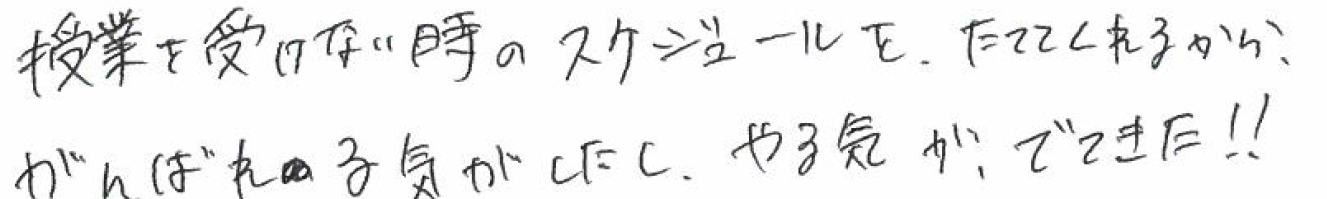 授業を受けない時のスケジュールを、たててくれるから、
がんばれる気がしたし、やる気が、でてきた!!